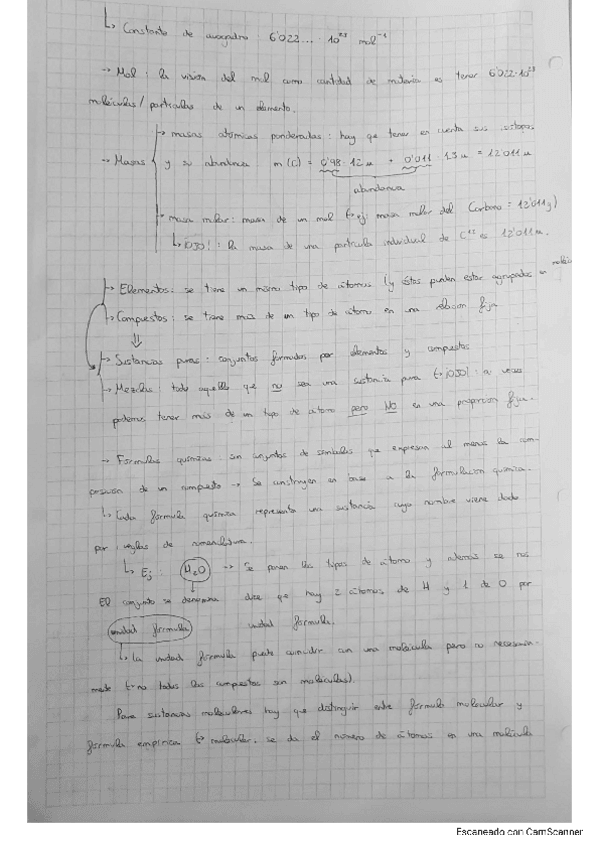 ↳ Constante de avogadro: 6'022... · 10²³ mol⁻¹
→ Mol: la visión del mol como cantidad de materia es tener 6'022·10²³
moléculas/partículas de un elemento.
→ masas atómicas ponderadas: hay que tener en cuenta sus isótopos
→ Masas y su abundancia m(C) = 0'98 · 12u + 0'011 · 13u = 12'011u
abundancia
→ masa molar: masa de un mol (→ ej: masa molar del Carbono = 12'011g)
↳ ¡OJO!: la masa de una partícula individual de C¹² es 12'011u.
→ Elementos: se tiene un mismo tipo de átomos (y éstos pueden estar agrupados en
→ Compuestos: se tiene más de un tipo de átomo en una relación fija
⇓
→ Sustancias puras: conjuntos formados por elementos y compuestos
→ Mezclas: todo aquello que no sea una sustancia pura (→ ¡OJO!: a veces
podemos tener más de un tipo de átomo pero NO en una proporción fija.
→ Fórmulas químicas: son conjuntos de símbolos que expresan al menos la com-
posición de un compuesto → Se construyen en base a la formulación química.
↳ Cada fórmula química representa una sustancia cuyo nombre viene dado
por reglas de nomenclatura.
↳ Ej: H₂O → Se ponen los tipos de átomo y además se nos
El conjunto se denomina dice que hay 2 átomos de H y 1 de O por
unidad fórmula unidad fórmula.
↳ La unidad fórmula puede coincidir con una molécula pero no necesaria-
mente (→ no todos los compuestos son moléculas).
Para sustancias moleculares hay que distinguir entre fórmula molecular y
fórmula empírica (→ molecular: se da el número de átomos en una molécula
Escaneado con CamScanner